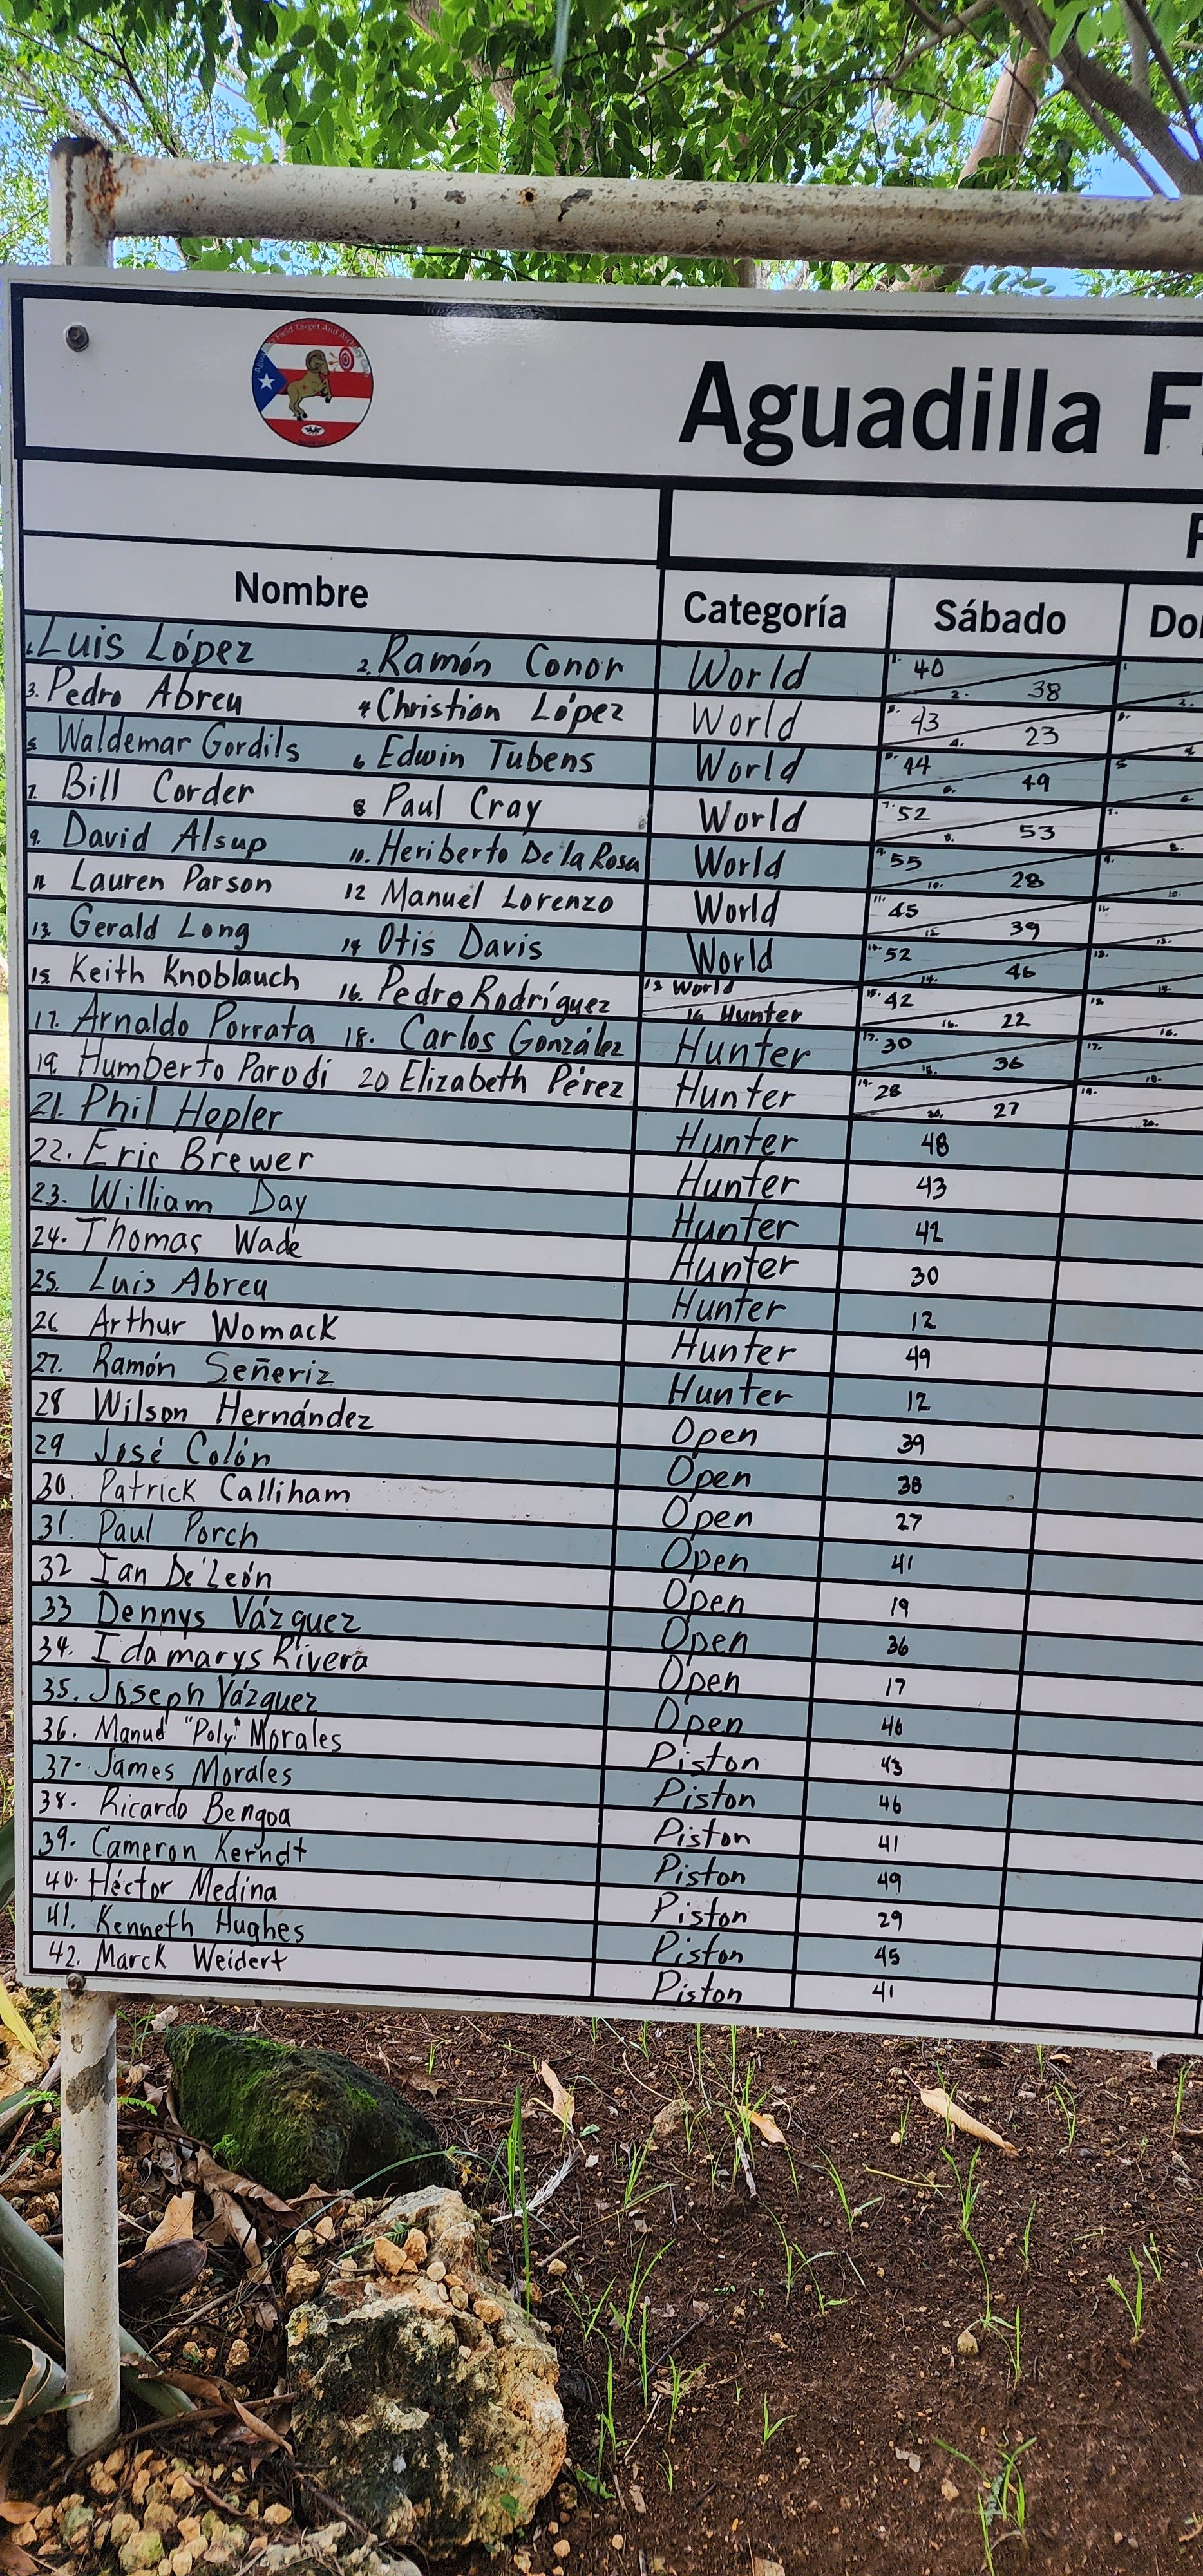 Aguadilla F
Nombre Categoría Sábado
1. Luis López 2. Ramón Conor World 1. 40 2. 38
3. Pedro Abreu 4 Christian López World 3. 43 4. 23
5 Waldemar Gordils 6 Edwin Tubens World 5. 44 6. 49
7. Bill Corder 8 Paul Cray World 7. 52 8. 53
9. David Alsup 10. Heriberto De la Rosa World 9. 55 10. 28
11 Lauren Parson 12 Manuel Lorenzo World 11. 45 12. 39
13. Gerald Long 14 Otis Davis World 13. 52 14. 46
15 Keith Knoblauch 16. Pedro Rodríguez 15 World 16 Hunter 15. 42 16. 22
17. Arnaldo Porrata 18. Carlos González Hunter 17. 30 18. 36
19. Humberto Parodi 20 Elizabeth Pérez Hunter 19. 28 20. 27
21. Phil Hepler Hunter 48
22. Eric Brewer Hunter 43
23. William Day Hunter 42
24. Thomas Wade Hunter 30
25. Luis Abreu Hunter 12
26 Arthur Womack Hunter 49
27. Ramón Señeriz Hunter 12
28 Wilson Hernández Open 39
29 José Colón Open 38
30. Patrick Calliham Open 27
31. Paul Porch Open 41
32 Ian De León Open 19
33 Dennys Vázquez Open 36
34. Idamarys Rivera Open 17
35. Joseph Vázquez Open 46
36. Manuel "Poly" Morales Piston 43
37. James Morales Piston 46
38. Ricardo Bengoa Piston 41
39. Cameron Kerndt Piston 49
40. Héctor Medina Piston 29
41. Kenneth Hughes Piston 45
42. Marck Weidert Piston 41